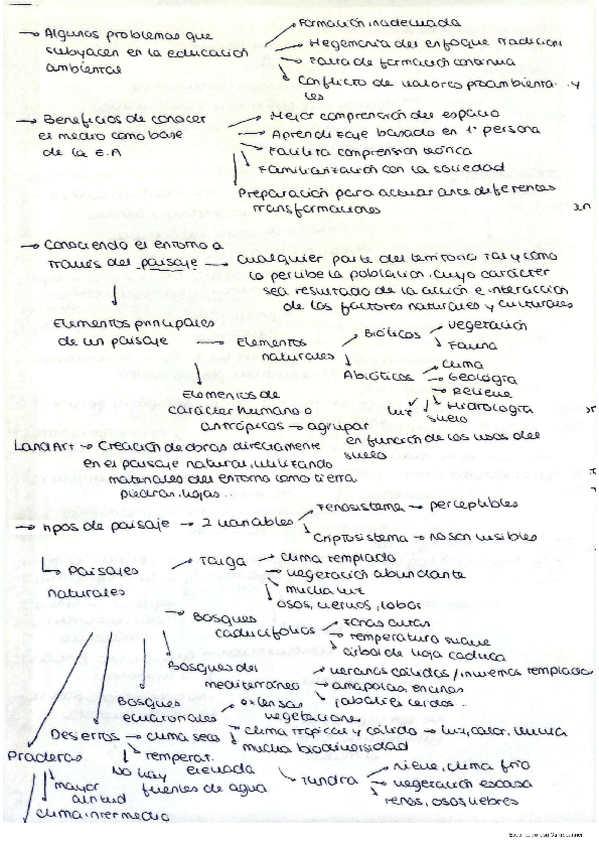 → Algunos problemas que
subyacen en la educación
ambiental
Formación inadecuada
Hegemonía del enfoque tradicional
Falta de formación continua
Conflicto de valores proambienta- y
les
→ Beneficios de conocer
el medio como base
de la E.A
Mejor comprensión del espacio
Aprendizaje basado en 1ª persona
Facilita comprensión teórica
Familiarización con la sociedad
Preparación para actuar ante diferentes
transformaciones
→ Conociendo el entorno a
través del paisaje → Cualquier parte del territorio tal y como
lo percibe la población, cuyo carácter
sea resultado de la acción e interacción
de los factores naturales y culturales
Elementos principales
de un paisaje → Elementos
naturales
Bióticos
vegetación
Fauna
Abióticos
Clima
Geología
Relieve
Hidrología
luz
suelo
Elementos de
carácter humano o
antrópicos → agrupar
en función de los usos del
suelo
Land Art → Creación de obras directamente
en el paisaje natural, utilizando
materiales del entorno como tierra
piedras, hojas..
→ Tipos de paisaje → 2 variables
Fenosistema → perceptibles
Criptosistema → no son visibles
↳ Paisajes
naturales
Taiga
clima templado
vegetación abundante
mucha luz
osos, ciervos, lobos
Bosques
caducifolios
zonas altas
temperatura suave
árbol de hoja caduca
Bosques del
mediterráneo
veranos cálidos / inviernos templados
amapolas, encinas
jabalíes cerdos..
Bosques
ecuatoriales
extensas
vegetaciones
clima tropical y cálido → luz, calor, lluvia
mucha biodiversidad
Desiertos → clima seco
temperat.
elevada
No hay
fuentes de agua
Praderas
mayor
altitud
clima intermedio
Tundra
nieve, clima frío
vegetación escasa
renos, osos, liebres